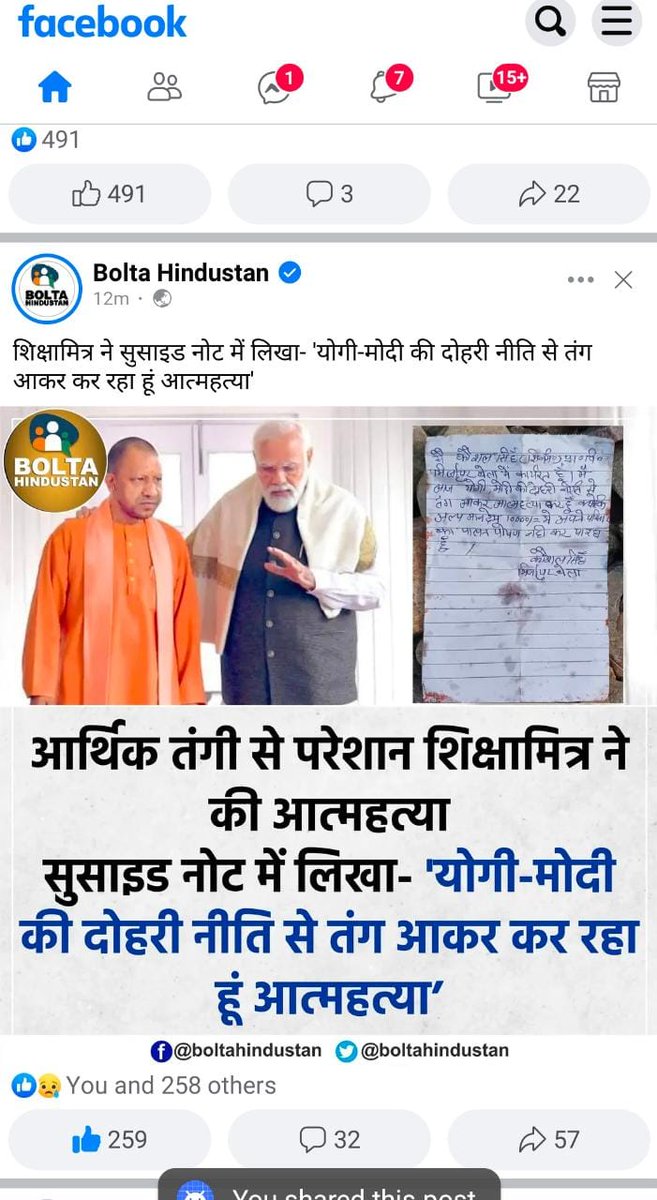 facebook
1
7
15+
491
491
3
22
Bolta Hindustan
12m
शिक्षामित्र ने सुसाइड नोट में लिखा- 'योगी-मोदी की दोहरी नीति से तंग
आकर कर रहा हूं आत्महत्या'
BOLTA
HINDUSTAN
BOLTA
HINDUSTAN
तंग आकर आत्महत्या कर
का पालन पोषण नही कर पा रहा
हूँ
आर्थिक तंगी से परेशान शिक्षामित्र ने
की आत्महत्या
सुसाइड नोट में लिखा- 'योगी-मोदी
की दोहरी नीति से तंग आकर कर रहा
हूं आत्महत्या’
@boltahindustan @boltahindustan
You and 258 others
259
32
57
You shared this post